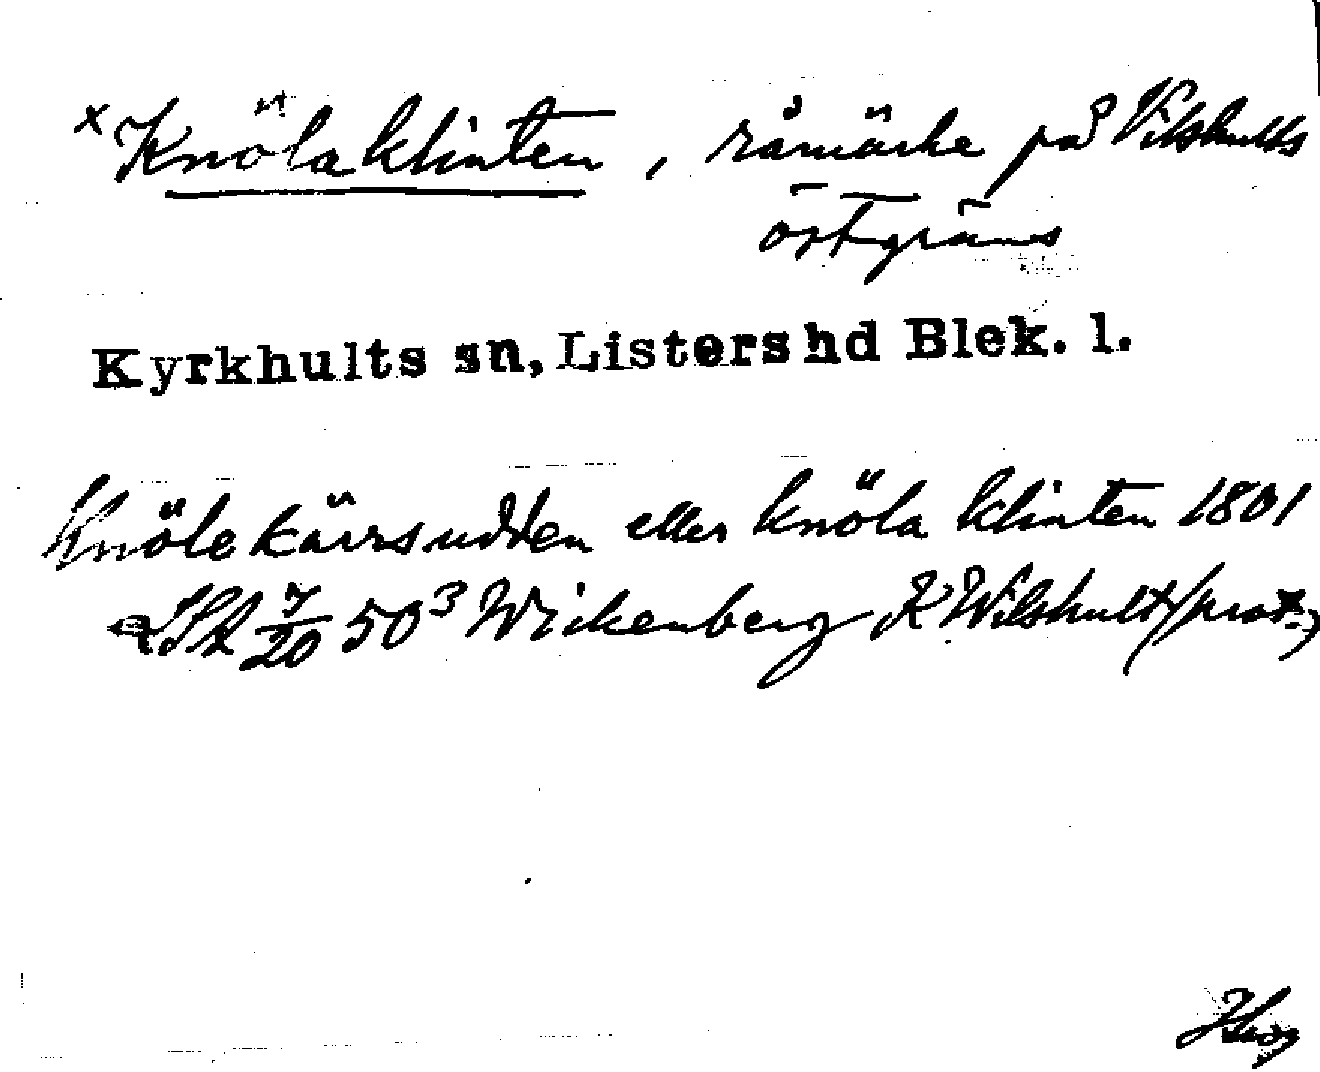 x Knölaklinten, råmärke på Vilshults
östgräns
Kyrkhults sn, Listers hd Blek. l.
Knölekärrsudden eller knöla klinten 1801
LSA 7/20 50³ Wickenberg K Wilshult (prot.)